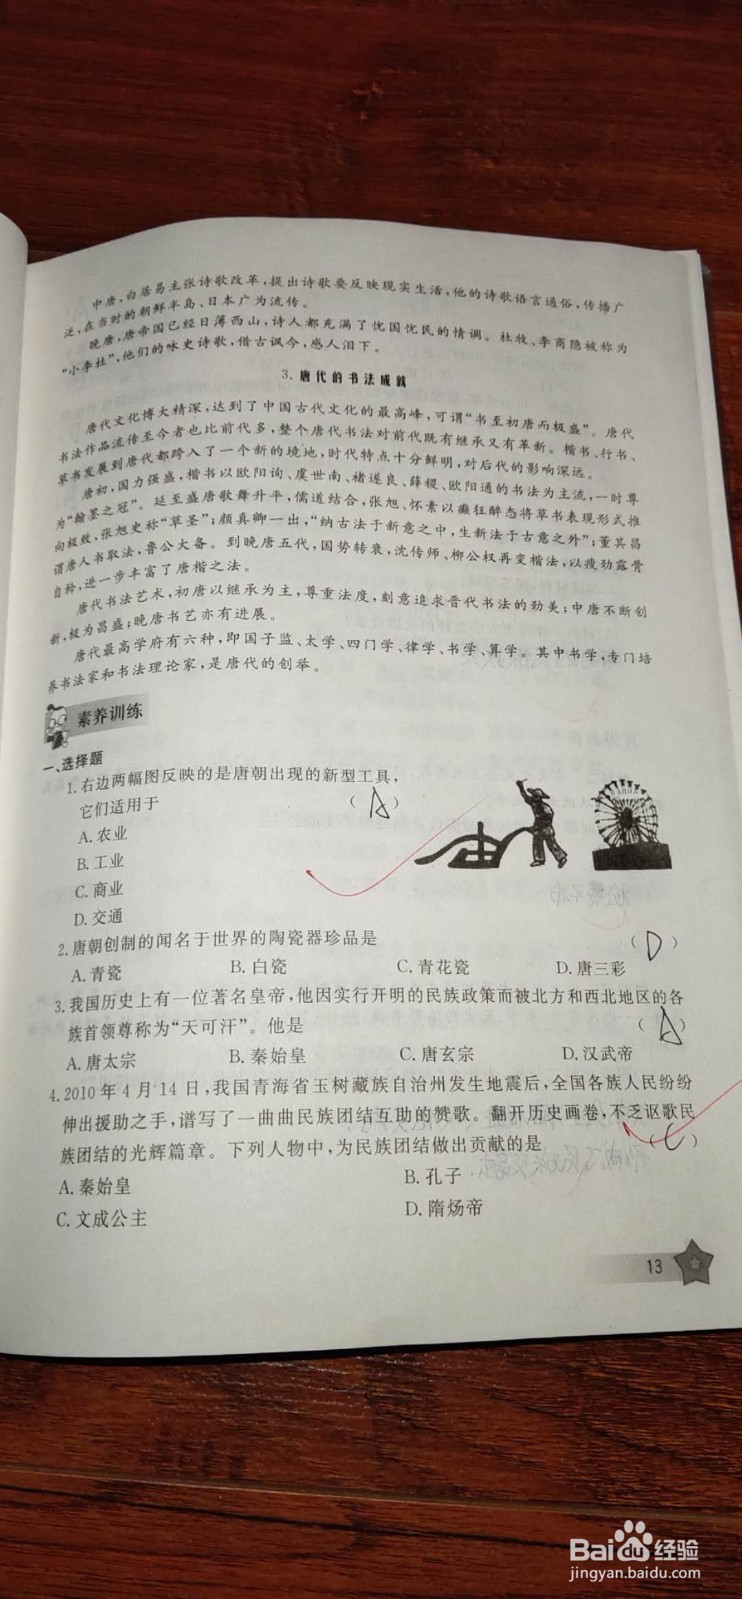 中唐，白居易主张诗歌改革，提出诗歌要反映现实生活，他的诗歌语言通俗，传播广
泛，在当时的朝鲜半岛、日本广为流传。
晚唐，唐帝国已经日薄西山，诗人都充满了忧国忧民的情调。杜牧、李商隐被称为
“小李杜”，他们的咏史诗歌，借古讽今，感人泪下。
3. 唐代的书法成就
唐代文化博大精深，达到了中国古代文化的最高峰，可谓“书至初唐而极盛”。唐代
书法作品流传至今者也比前代多，整个唐代书法对前代既有继承又有革新。楷书、行书、
草书发展到唐代都跨入了一个新的境地，时代特点十分鲜明，对后代的影响深远。
唐初，国力强盛，楷书以欧阳询、虞世南、褚遂良、薛稷、欧阳通的书法为主流，一时尊
为“翰墨之冠”。延至盛唐歌舞升平，儒道结合，张旭、怀素以癫狂醉态将草书表现形式推
向极致，张旭史称“草圣”；颜真卿一出，“纳古法于新意之中，生新法于古意之外”；董其昌
谓唐人书取法，鲁公大备。到晚唐五代，国势转衰，沈传师、柳公权再变楷法，以瘦劲露骨
自矜，进一步丰富了唐楷之法。
唐代书法艺术，初唐以继承为主，尊重法度，刻意追求晋代书法的劲美；中唐不断创
新，极为昌盛；晚唐书艺亦有进展。
唐代最高学府有六种，即国子监、太学、四门学、律学、书学、算学。其中书学，专门培
养书法家和书法理论家，是唐代的创举。
素养训练
一、选择题
1. 右边两幅图反映的是唐朝出现的新型工具，
它们适用于 （A）
A. 农业
B. 工业
C. 商业
D. 交通
2. 唐朝创制的闻名于世界的陶瓷器珍品是 （D）
A. 青瓷 B. 白瓷 C. 青花瓷 D. 唐三彩
3. 我国历史上有一位著名皇帝，他因实行开明的民族政策而被北方和西北地区的各
族首领尊称为“天可汗”。他是 （A）
A. 唐太宗 B. 秦始皇 C. 唐玄宗 D. 汉武帝
4. 2010年4月14日，我国青海省玉树藏族自治州发生地震后，全国各族人民纷纷
伸出援助之手，谱写了一曲曲民族团结互助的赞歌。翻开历史画卷，不乏讴歌民
族团结的光辉篇章。下列人物中，为民族团结做出贡献的是 （C）
A. 秦始皇 B. 孔子
C. 文成公主 D. 隋炀帝
13
Baidu经验
jingyan.baidu.com